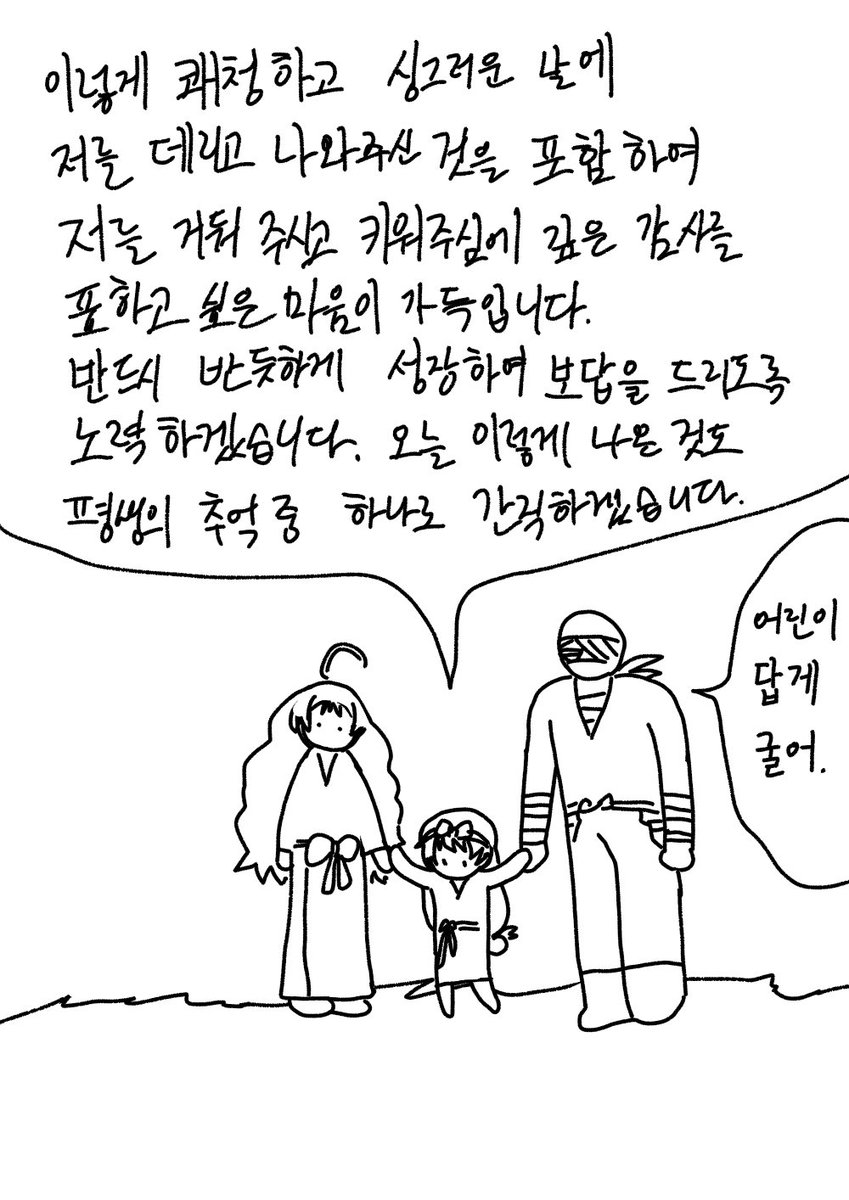 이렇게 쾌청하고 싱그러운 날에
저를 데리고 나와주신 것을 포함하여
저를 거둬 주시고 키워주심에 깊은 감사를
표하고 싶은 마음이 가득입니다.
반드시 반듯하게 성장하여 보답을 드리도록
노력하겠습니다. 오늘 이렇게 나온 것도
평생의 추억 중 하나로 간직하겠습니다.
어린이
답게
굴어.